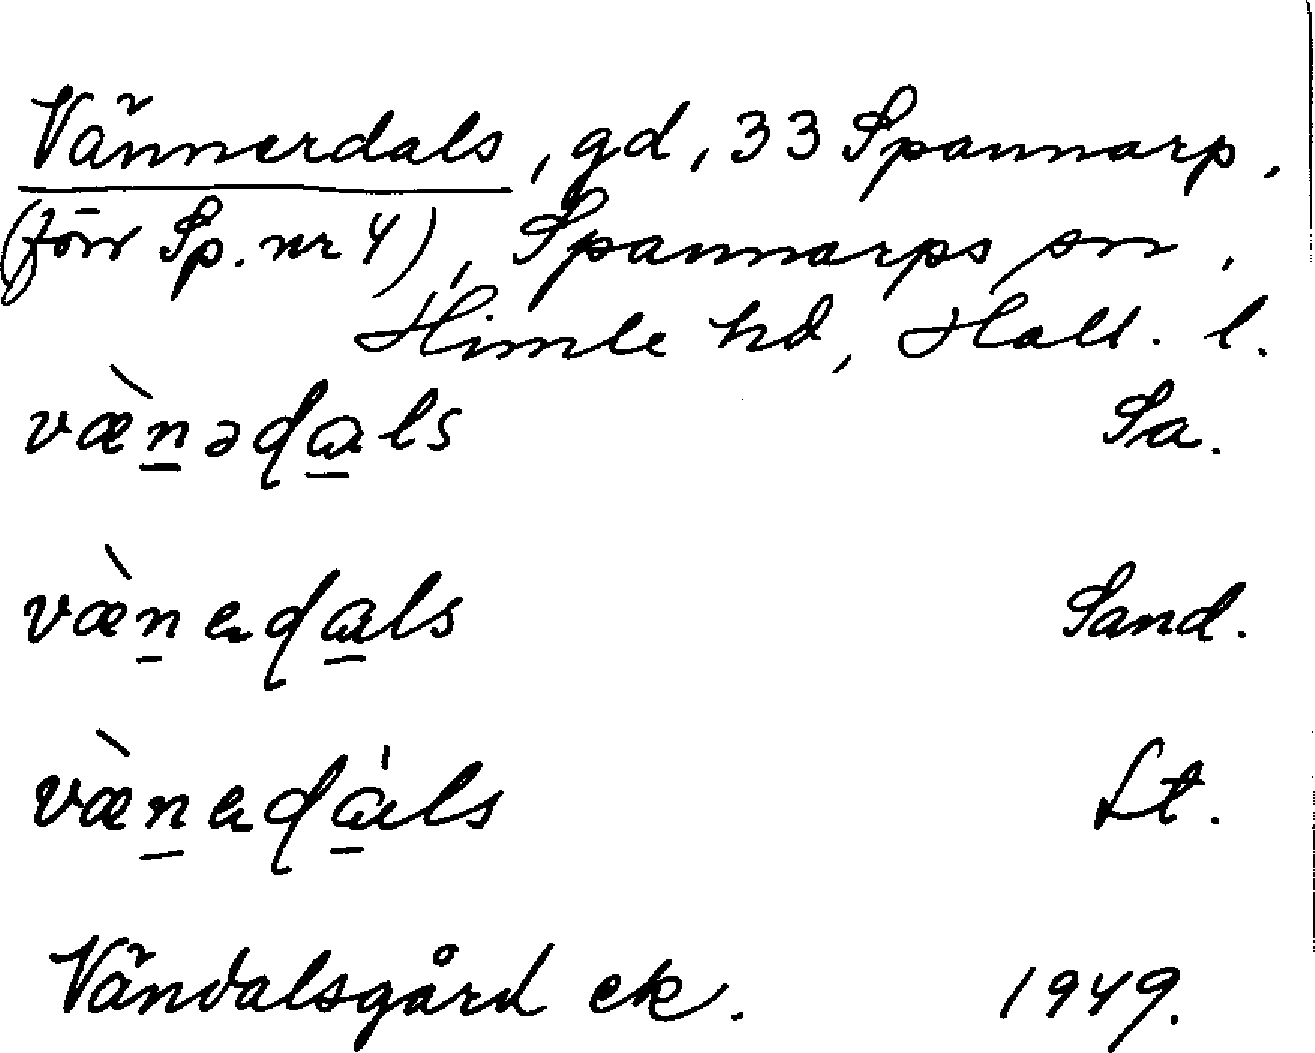 Vännerdals, gd, 33 Spannarp.
(förr Sp. nr 4), Spannarps sn,
Himle hd, Hall. l.
væ̀n̲ədɑ̲ls Sa.
væ̀n̲ɐdɑ̲ls Sand.
væ̀n̲ɐdɑ̲́ls Lt.
Vändalsgård ek. 1949.